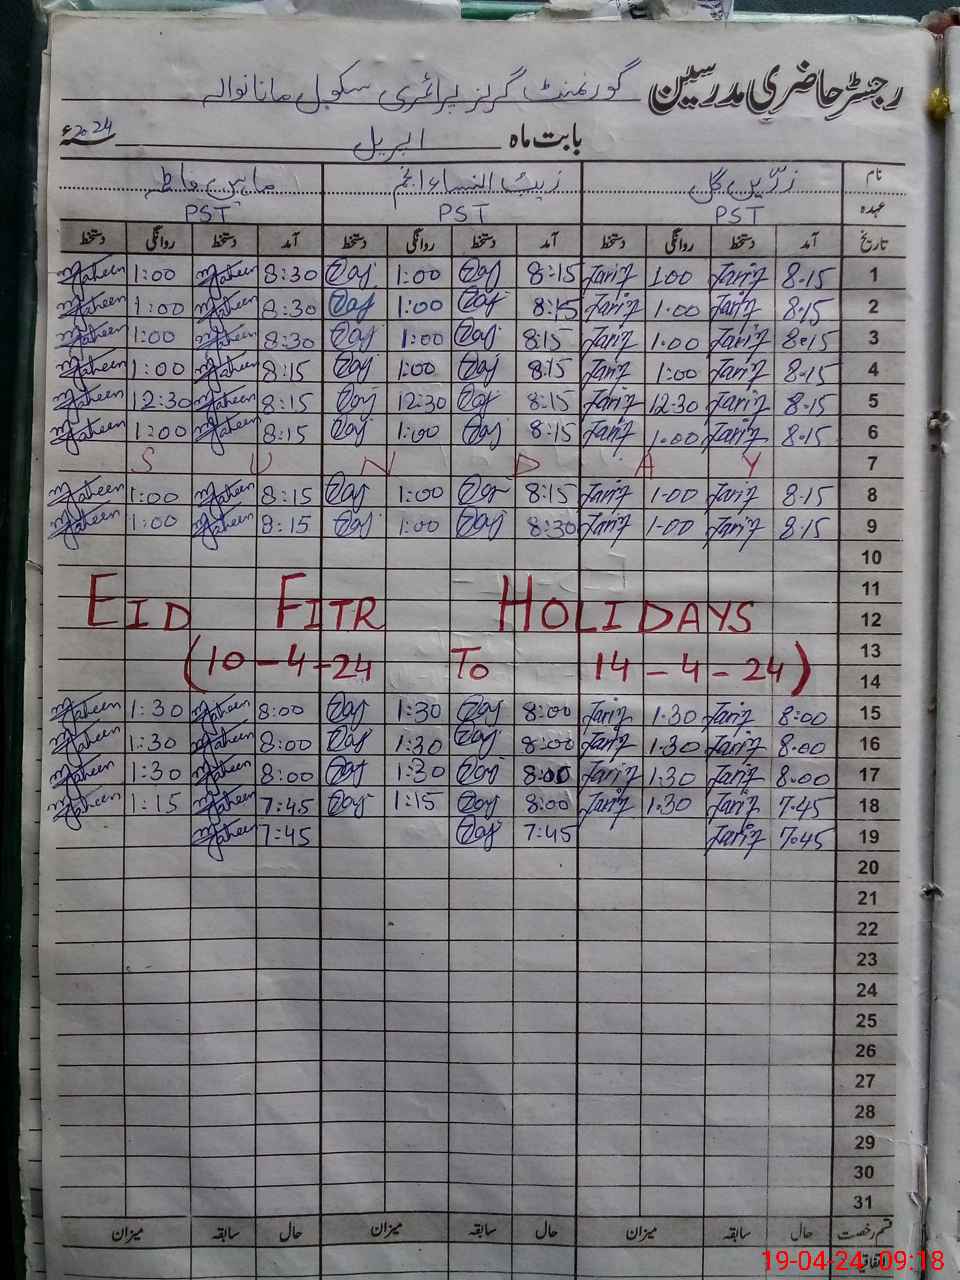 رجسٹر حاضری مدرسین گورنمنٹ گرلز پرائمری سکول مانانوالہ
بابت ماہ اپریل 2024ء
نام زرّیں گل زیب النساء انجم ماہین فاطمہ
عہدہ PST PST PST
تاریخ آمد دستخط روانگی دستخط آمد دستخط روانگی دستخط آمد دستخط روانگی دستخط
Maheen 1:00 Maheen 8:30 1:00 8:15 1.00 8.15 1
Maheen 1:00 Maheen 8:30 1:00 8:15 1.00 8.15 2
Maheen 1:00 Maheen 8:30 1:00 8:15 1.00 8.15 3
Maheen 1:00 Maheen 8:15 1:00 8:15 1:00 8.15 4
Maheen 12:30 Maheen 8:15 12:30 8:15 12.30 8.15 5
Maheen 1:00 Maheen 8:15 1:00 8:15 1.00 8.15 6
S U N D A Y 7
Maheen 1:00 Maheen 8:15 1:00 8:15 1.00 8.15 8
Maheen 1:00 Maheen 8:15 1:00 8:30 1.00 8.15 9
10
11
EID FITR HOLIDAYS 12
(10-4-24 To 14-4-24) 13
14
Maheen 1:30 Maheen 8:00 1:30 8:00 1.30 8:00 15
Maheen 1:30 Maheen 8:00 1:30 8:00 1.30 8.00 16
Maheen 1:30 Maheen 8:00 1:30 8:00 1.30 8.00 17
Maheen 1:15 Maheen 7:45 1:15 8:00 1.30 7.45 18
Maheen 7:45 7:45 7.45 19
20
21
22
23
24
25
26
27
28
29
30
31
قسم رخصت حال سابقہ میزان حال سابقہ میزان حال سابقہ میزان
19-04-24 09:18